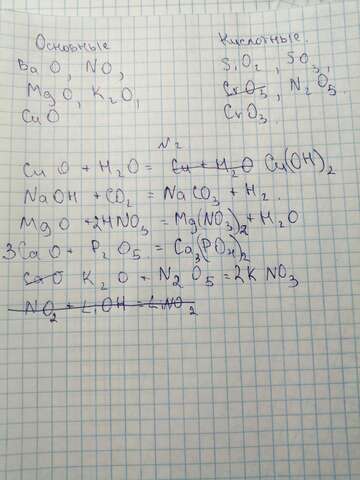 Основные
BaO, NO,
MgO, K2O,
CuO
Кислотные.
SiO2, SO3,
CrO5, N2O5
CrO3.
N2
CuO + H2O = Cu + H2O Cu(OH)2
NaOH + CO2 = NaCO3 + H2.
MgO + 2HNO3 = Mg(NO3)2 + H2O
3CaO + P2O5 = Ca3(PO4)2
CaO K2O + N2O5 = 2KNO3
NO2 + LiOH = LiNO2